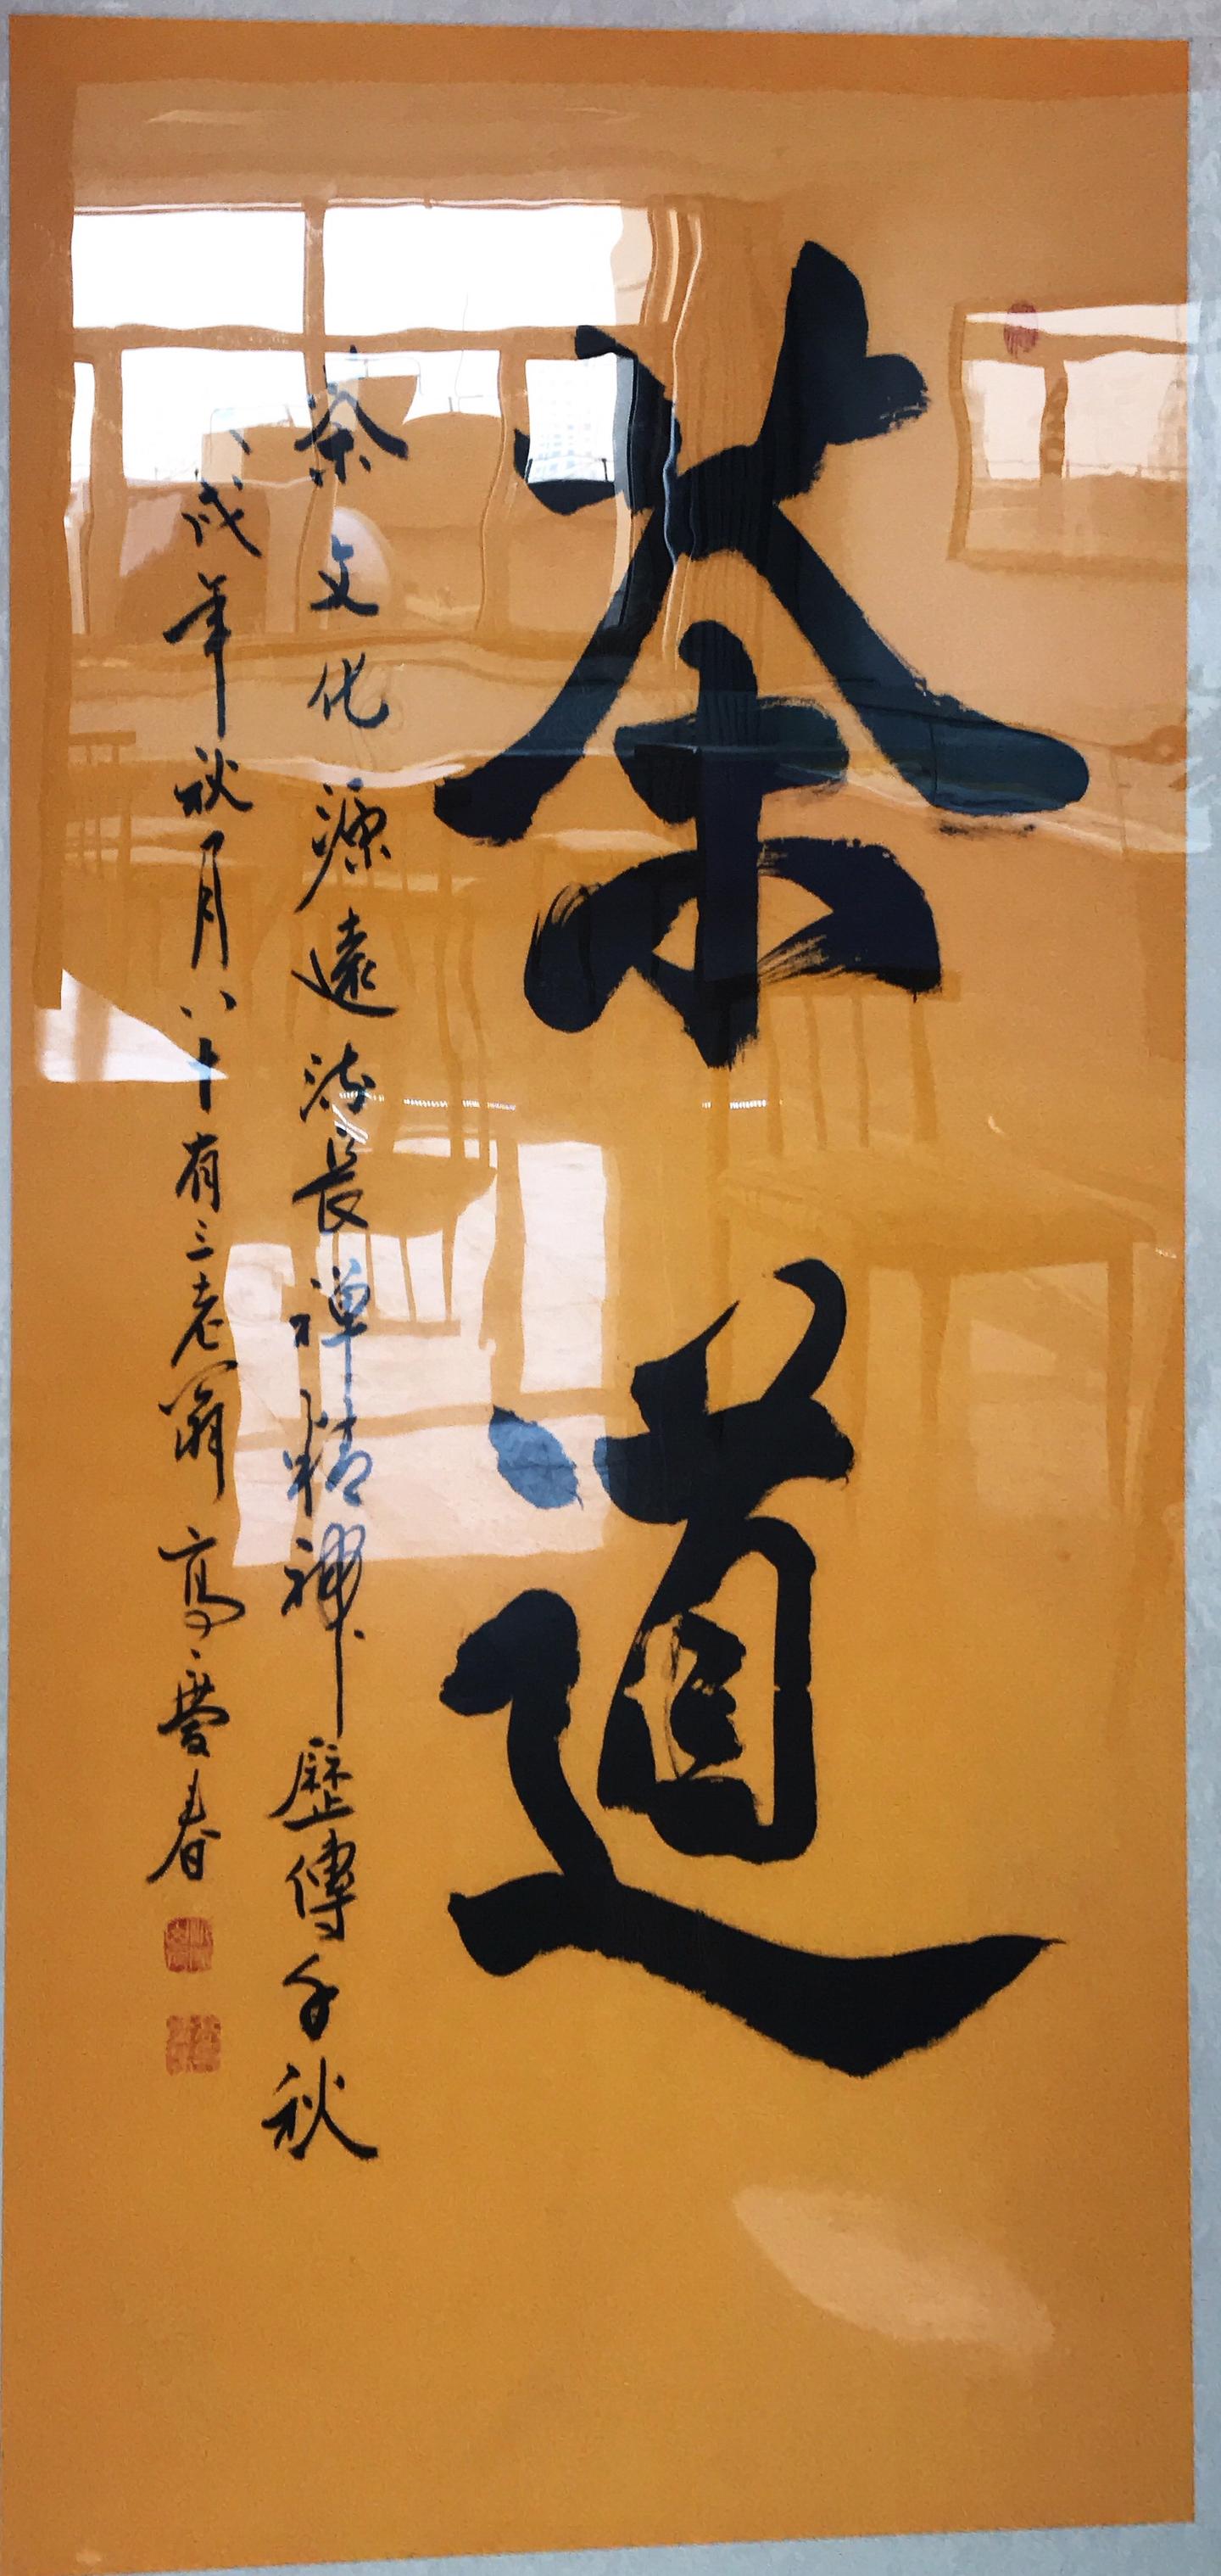 茶道
茶文化源遠流長禅精神歷傳千秋
戌年秋月八十有三老翁高慶春